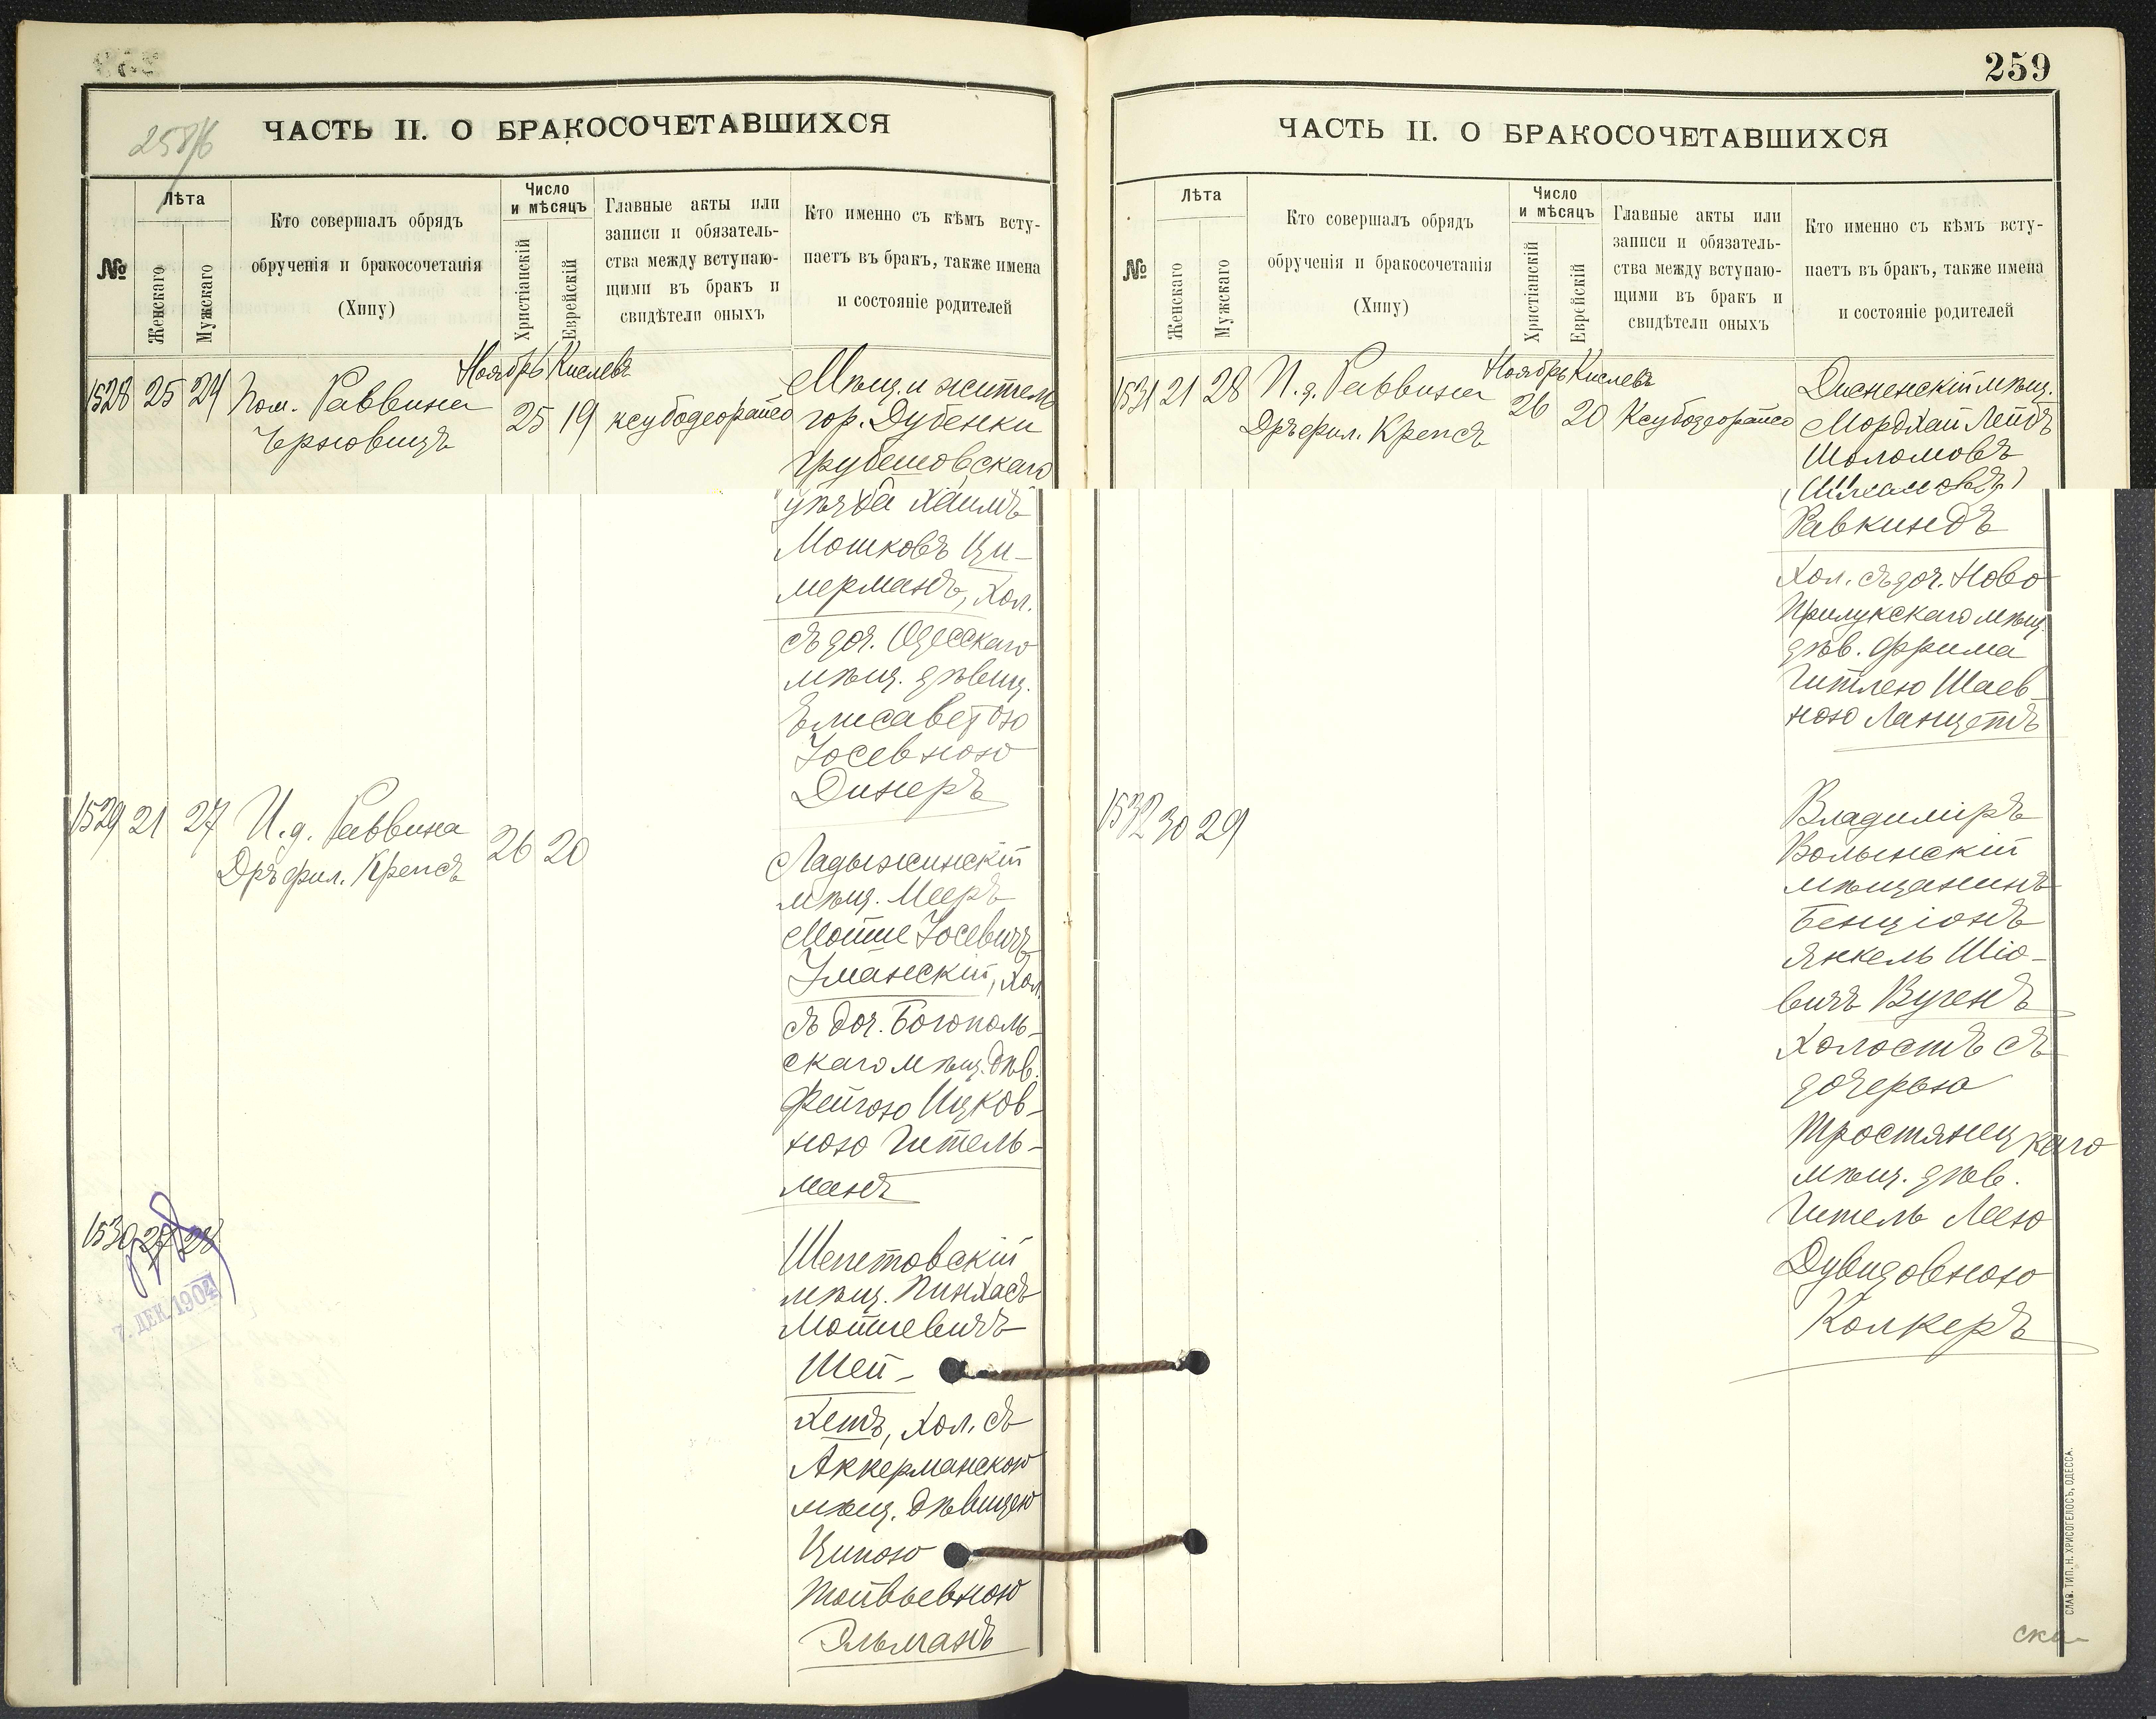 258/б
ЧАСТЬ II. О БРАКОСОЧЕТАВШИХСЯ
№
Лѣта
Женскаго
Мужскаго
Кто совершалъ обрядъ
обрученія и бракосочетанія
(Хипу)
Число
и мѣсяцъ
Христіанскій
Еврейскій
Главные акты или
записи и обязатель-
ства между вступаю-
щими въ бракъ и
свидѣтели оныхъ
Кто именно съ кѣмъ всту-
паетъ въ бракъ, также имена
и состояніе родителей
Ноябрь Кислевъ
1528 25 24 Пом. Раввина
Черновицъ
25 19 ксубодеорайсо
Мѣщ. и житель
гор. Дубенки
Грубешовскаго
уѣзда Хаимъ
Мошковъ Ци-
мерманъ, Хол.
съ доч. Одесскаго
мѣщ. дѣвиц.
Елисаветою
Іосевною
Динеръ
1529 21 27 И.д. Раввина
Дръ фил. Крепсъ
26 20
Ладыжинскій
мѣщ. Мееръ
Мошке Іосевичъ
Уманскій, Хол.
съ доч. Богополь-
скаго мѣщ. дѣв.
Фейгою Ицков-
ною Гитель-
манъ
1530 27 28
7. ДЕК. 1904
Шепетовскій
мѣщ. Пинхасъ
Мошкевичъ
Шей-
хетъ, Хол. съ
Аккерманскою
мѣщ. дѣвицею
Ципою
Тойвьевною
Эльманъ
259
ЧАСТЬ II. О БРАКОСОЧЕТАВШИХСЯ
№
Лѣта
Женскаго
Мужскаго
Кто совершалъ обрядъ
обрученія и бракосочетанія
(Хипу)
Число
и мѣсяцъ
Христіанскій
Еврейскій
Главные акты или
записи и обязатель-
ства между вступаю-
щими въ бракъ и
свидѣтели оныхъ
Кто именно съ кѣмъ всту-
паетъ въ бракъ, также имена
и состояніе родителей
Ноябрь Кислевъ
1531 21 28 И.д. Раввина
Дръ фил. Крепсъ
26 20 Ксубодеорайсо
Дисненскій мѣщ.
Мордхай Лейбъ
Шоломовъ
Равкиндъ
Хол. съ доч. Ново
Прилукскаго мѣщ.
дѣв. Фрима
Гитлею Шаев-
ною Ланцетъ
1532 30 29
Владиміръ
Волынскій
мѣщанинъ
Бенціонъ
Янкель Шіо-
вичъ Вугенъ
Холостъ съ
дочерью
Тростянецкаго
мѣщ. дѣв.
Гитель Леею
Дувидовною
Колкеръ
СЛАВ. ТИП. Н. ХРИСОГЕЛОСЪ, ОДЕССА.